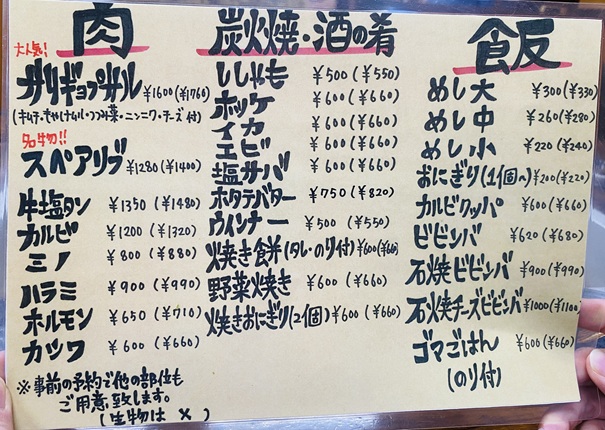 肉
大人気!
サムギョプサル ¥1600(¥1760)
スペアリブ ¥1280(¥1400)
名物!!
牛塩タン ¥1350(¥1480)
カルビ ¥1200(¥1320)
ミノ ¥800(¥880)
ハラミ ¥900(¥990)
ホルモン ¥650(¥710)
カシワ ¥600(¥660)
※事前の予約で他の部位も
ご用意致します。
(生物は×)
炭火焼・酒の肴
ししゃも ¥500(¥550)
ホッケ ¥600(¥660)
イカ ¥600(¥660)
エビ ¥600(¥660)
塩サバ ¥600(¥660)
ホタテバター ¥750(¥820)
ウインナー ¥500(¥550)
焼き餅(タレ・のり付)¥600(¥660)
野菜焼き ¥600(¥660)
焼きおにぎり(2個)¥600(¥660)
飯
めし大 ¥300(¥330)
めし中 ¥260(¥280)
めし小 ¥220(¥240)
おにぎり(1個〜)¥200(¥220)
カルビクッパ ¥600(¥660)
ビビンバ ¥620(¥680)
石焼ビビンバ ¥900(¥990)
石焼チーズビビンバ ¥1000(¥1100)
ゴマごはん ¥600(¥660)
(のり付)